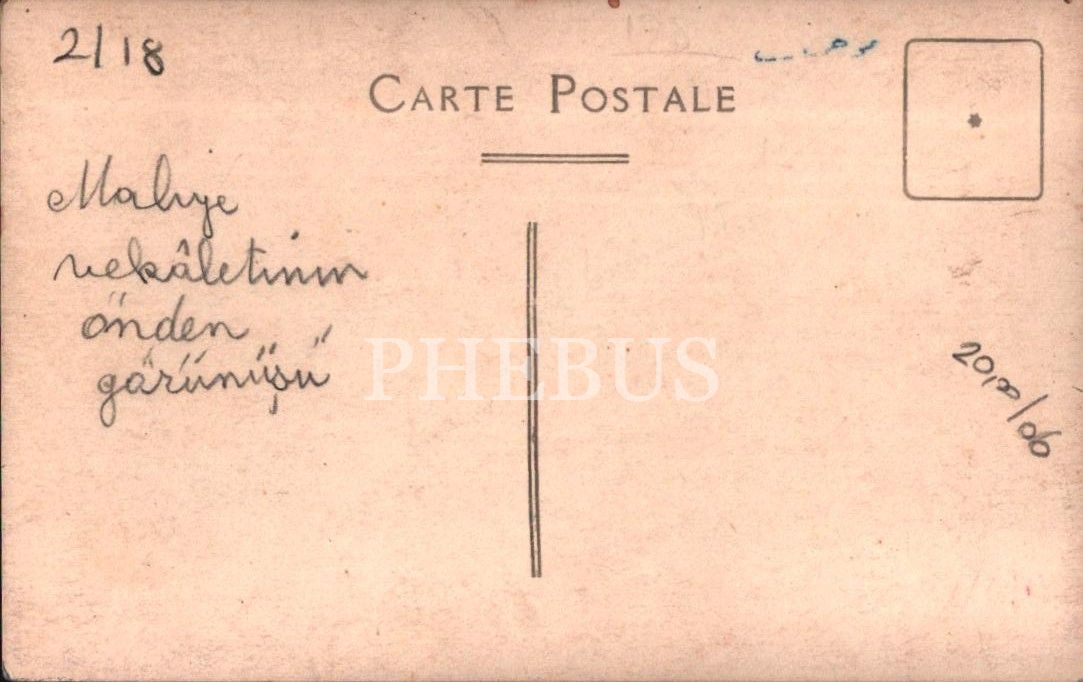 2/18
CARTE POSTALE
Maliye
vekâletinin
önden
görünüşü
PHEBUS
20,00/06